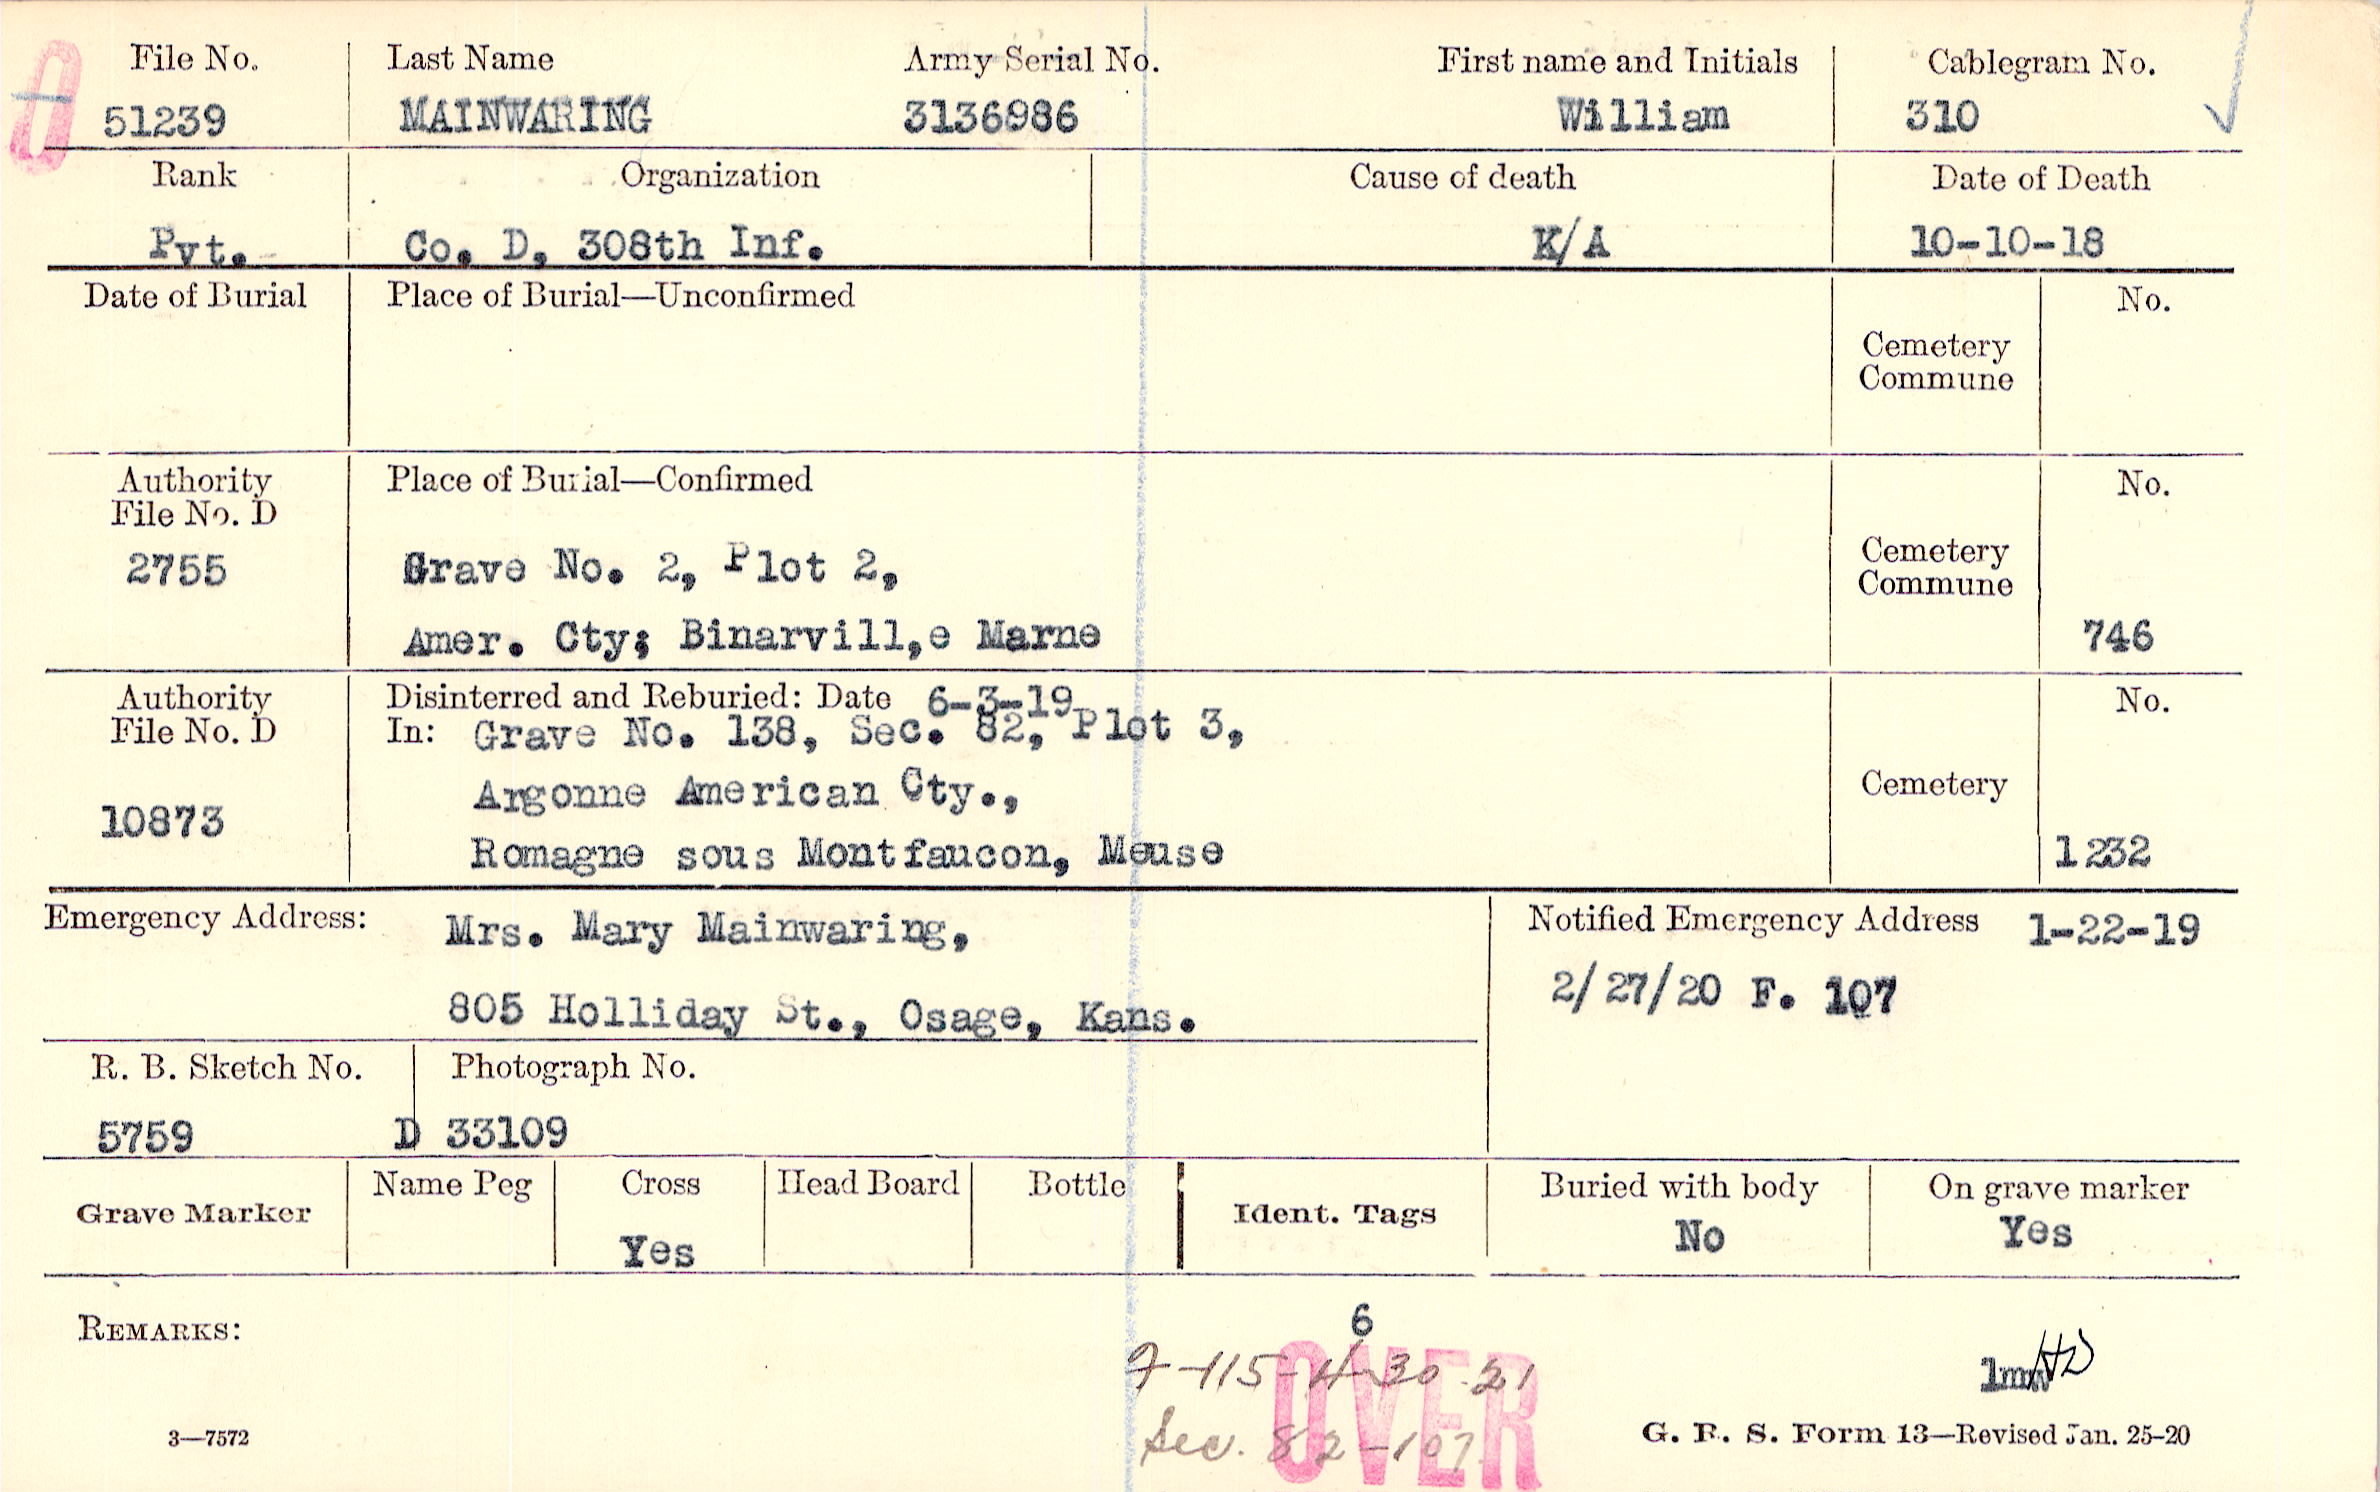 File No. Last Name Army Serial No. First name and Initials Cablegram No.
51239 MAINWARING 3136986 William 310
Rank Organization Cause of death Date of Death
Pvt. Co. D, 308th Inf. K/A 10-10-18
Date of Burial Place of Burial—Unconfirmed No.
Cemetery
Commune
Authority Place of Burial—Confirmed No.
File No. D
2755 Grave No. 2, Plot 2, Cemetery
Commune
Amer. Cty; Binarvill,e Marne 746
Authority Disinterred and Reburied: Date 6-3-19 No.
File No. D In: Grave No. 138, Sec. 82, Plot 3,
10873 Argonne American Cty., Cemetery
Romagne sous Montfaucon, Meuse 1232
Emergency Address: Mrs. Mary Mainwaring, Notified Emergency Address 1-22-19
2/27/20 F. 107
805 Holliday St., Osage, Kans.
R. B. Sketch No. Photograph No.
5759 D 33109
Grave Marker Name Peg Cross Head Board Bottle Ident. Tags Buried with body On grave marker
Yes No Yes
REMARKS:
6
7-115-4-30-21
Sec. 82-107
OVER
lmw
3—7572 G. R. S. Form 13—Revised Jan. 25-20